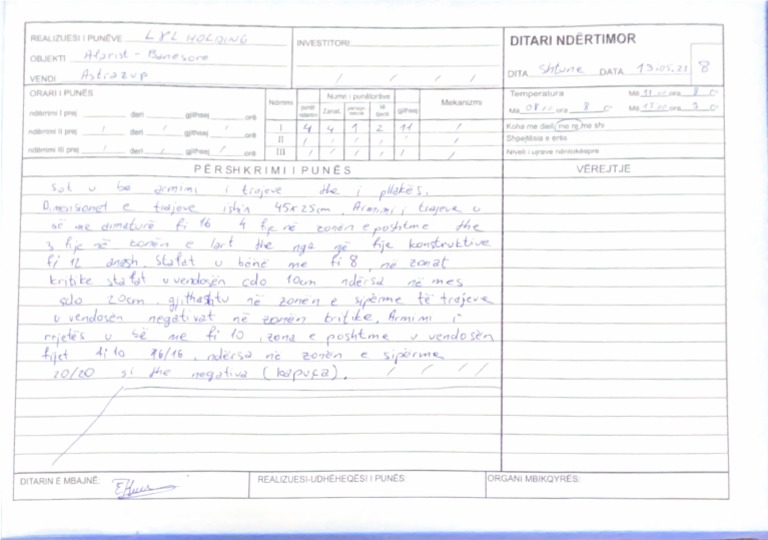 REALIZUESI I PUNËVE L&L HOLDING
OBJEKTI Afarist - Banesore
VENDI Astrazup
INVESTITORI
DITARI NDËRTIMOR
DITA Shtune DATA 13.05.23 8
ORARI I PUNËS
ndërrimi I prej deri gjithsej orë
ndërrimi II prej / deri / gjithsej / orë
ndërrimi III prej / deri / gjithsej / orë
Ndërrimi Numri i punëtorëve Mekanizmi
Zanat. gjithsej
I 4 4 1 2 11 /
II
III
Temperatura
Më 08 00 ora 8 C°
Koha me diell, me re, me shi
Shpejtësia e erës
Niveli i ujrave nëntokësore
PËRSHKRIMI I PUNËS
VËREJTJE
Sot u be armimi i trajeve dhe i pllakës.
Dimensionet e trajeve ishin 45x25cm. Armimi i trajeve u
bë me dimaturë fi 16 4 fije në zonën e poshtme dhe
3 fije në zonën e lart dhe nga një fije konstruktive
fi 12 anash. Stafat u bënë me fi 8, në zonat
kritike stafat u vendosën çdo 10cm ndërsa në mes
çdo 20cm. gjithashtu në zonën e sipërme të trajeve
u vendosën negativat në zonën kritike. Armimi i
rrjetës u bë me fi 10, zona e poshtme u vendosën
fijet fi 10 16/16, ndërsa në zonën e sipërme
20/20 si dhe negativa (kapuça).
DITARIN E MBAJNË:
REALIZUESI-UDHËHEQËSI I PUNËS:
ORGANI MBIKQYRËS: